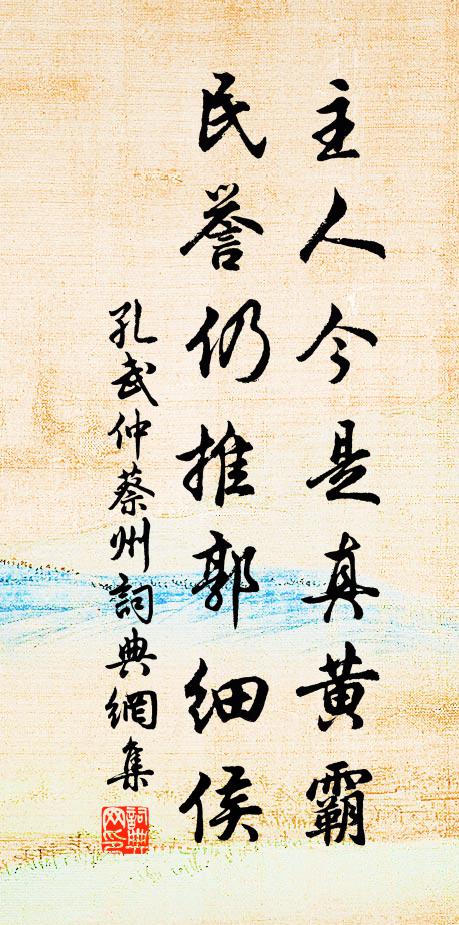 主人今是真黃霸
民譽仍推郭細侯
孔武仲蔡州詞典網集
詞典网印